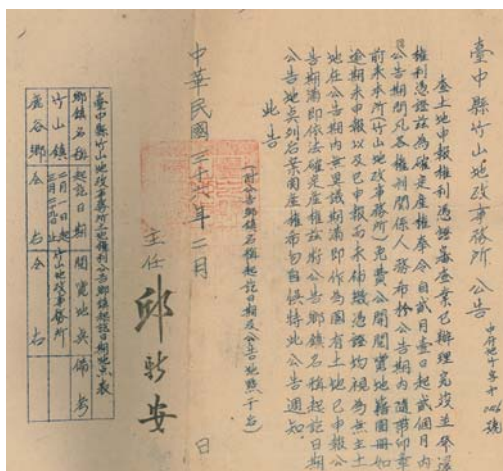 臺中縣竹山地政事務所 公告
查土地申報權利憑證審查業已辦理完竣並發還
權利憑證茲為確定產權奉令自貳月壹日起貳個月內
公告期間凡各權利關係人務希於公告期內隨帶印章
前來本所(竹山地政事務所)免費公開閱覽地籍圖冊如
逾期未申報以及已申報而未補繳憑證均視為無主土
地在公告期內無異議期滿即作為國有土地已申報公
告期滿即依法確定產權茲將公告鄉鎮名稱起訖日期
公告地點列名業關產權希勿自悞特此公告通知
此告
(附公告鄉鎮名稱起訖日期及公告地點一份)
中華民國三十六年二月 日
主任 邱新安
臺中縣竹山地政事務所土地權利公告鄉鎮起訖日期地點表
鄉鎮名稱 起訖日期 閱覽地點 備考
竹山鎮 二月一日起 三月三十日止 竹山地政事務所
鹿谷鄉 仝右 仝右